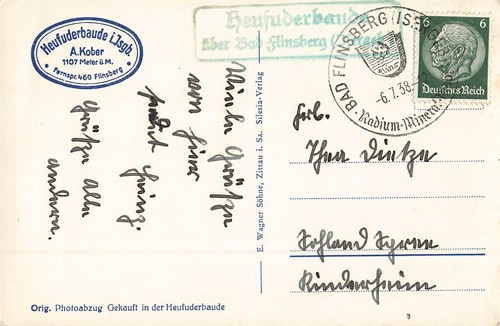 Heufuderbaude i. Isgb.
A. Kober
1107 Meter ü.M.
Fernspr. 460 Flinsberg
Heufuderbaude
über Bad Flinsberg
BAD FLINSBERG (ISERGEB
-6.7.38
Radium-Mineral
6 6
Deutsches Reich
Viele Grüße
von hier
sendet Heinz.
Grüße alle
andern.
E. Wagner Söhne, Zittau i. Sa. Silesia-Verlag
Frl.
Thea Dietze
Sohland Spree
Kinderheim
Orig. Photoabzug Gekauft in der Heufuderbaude